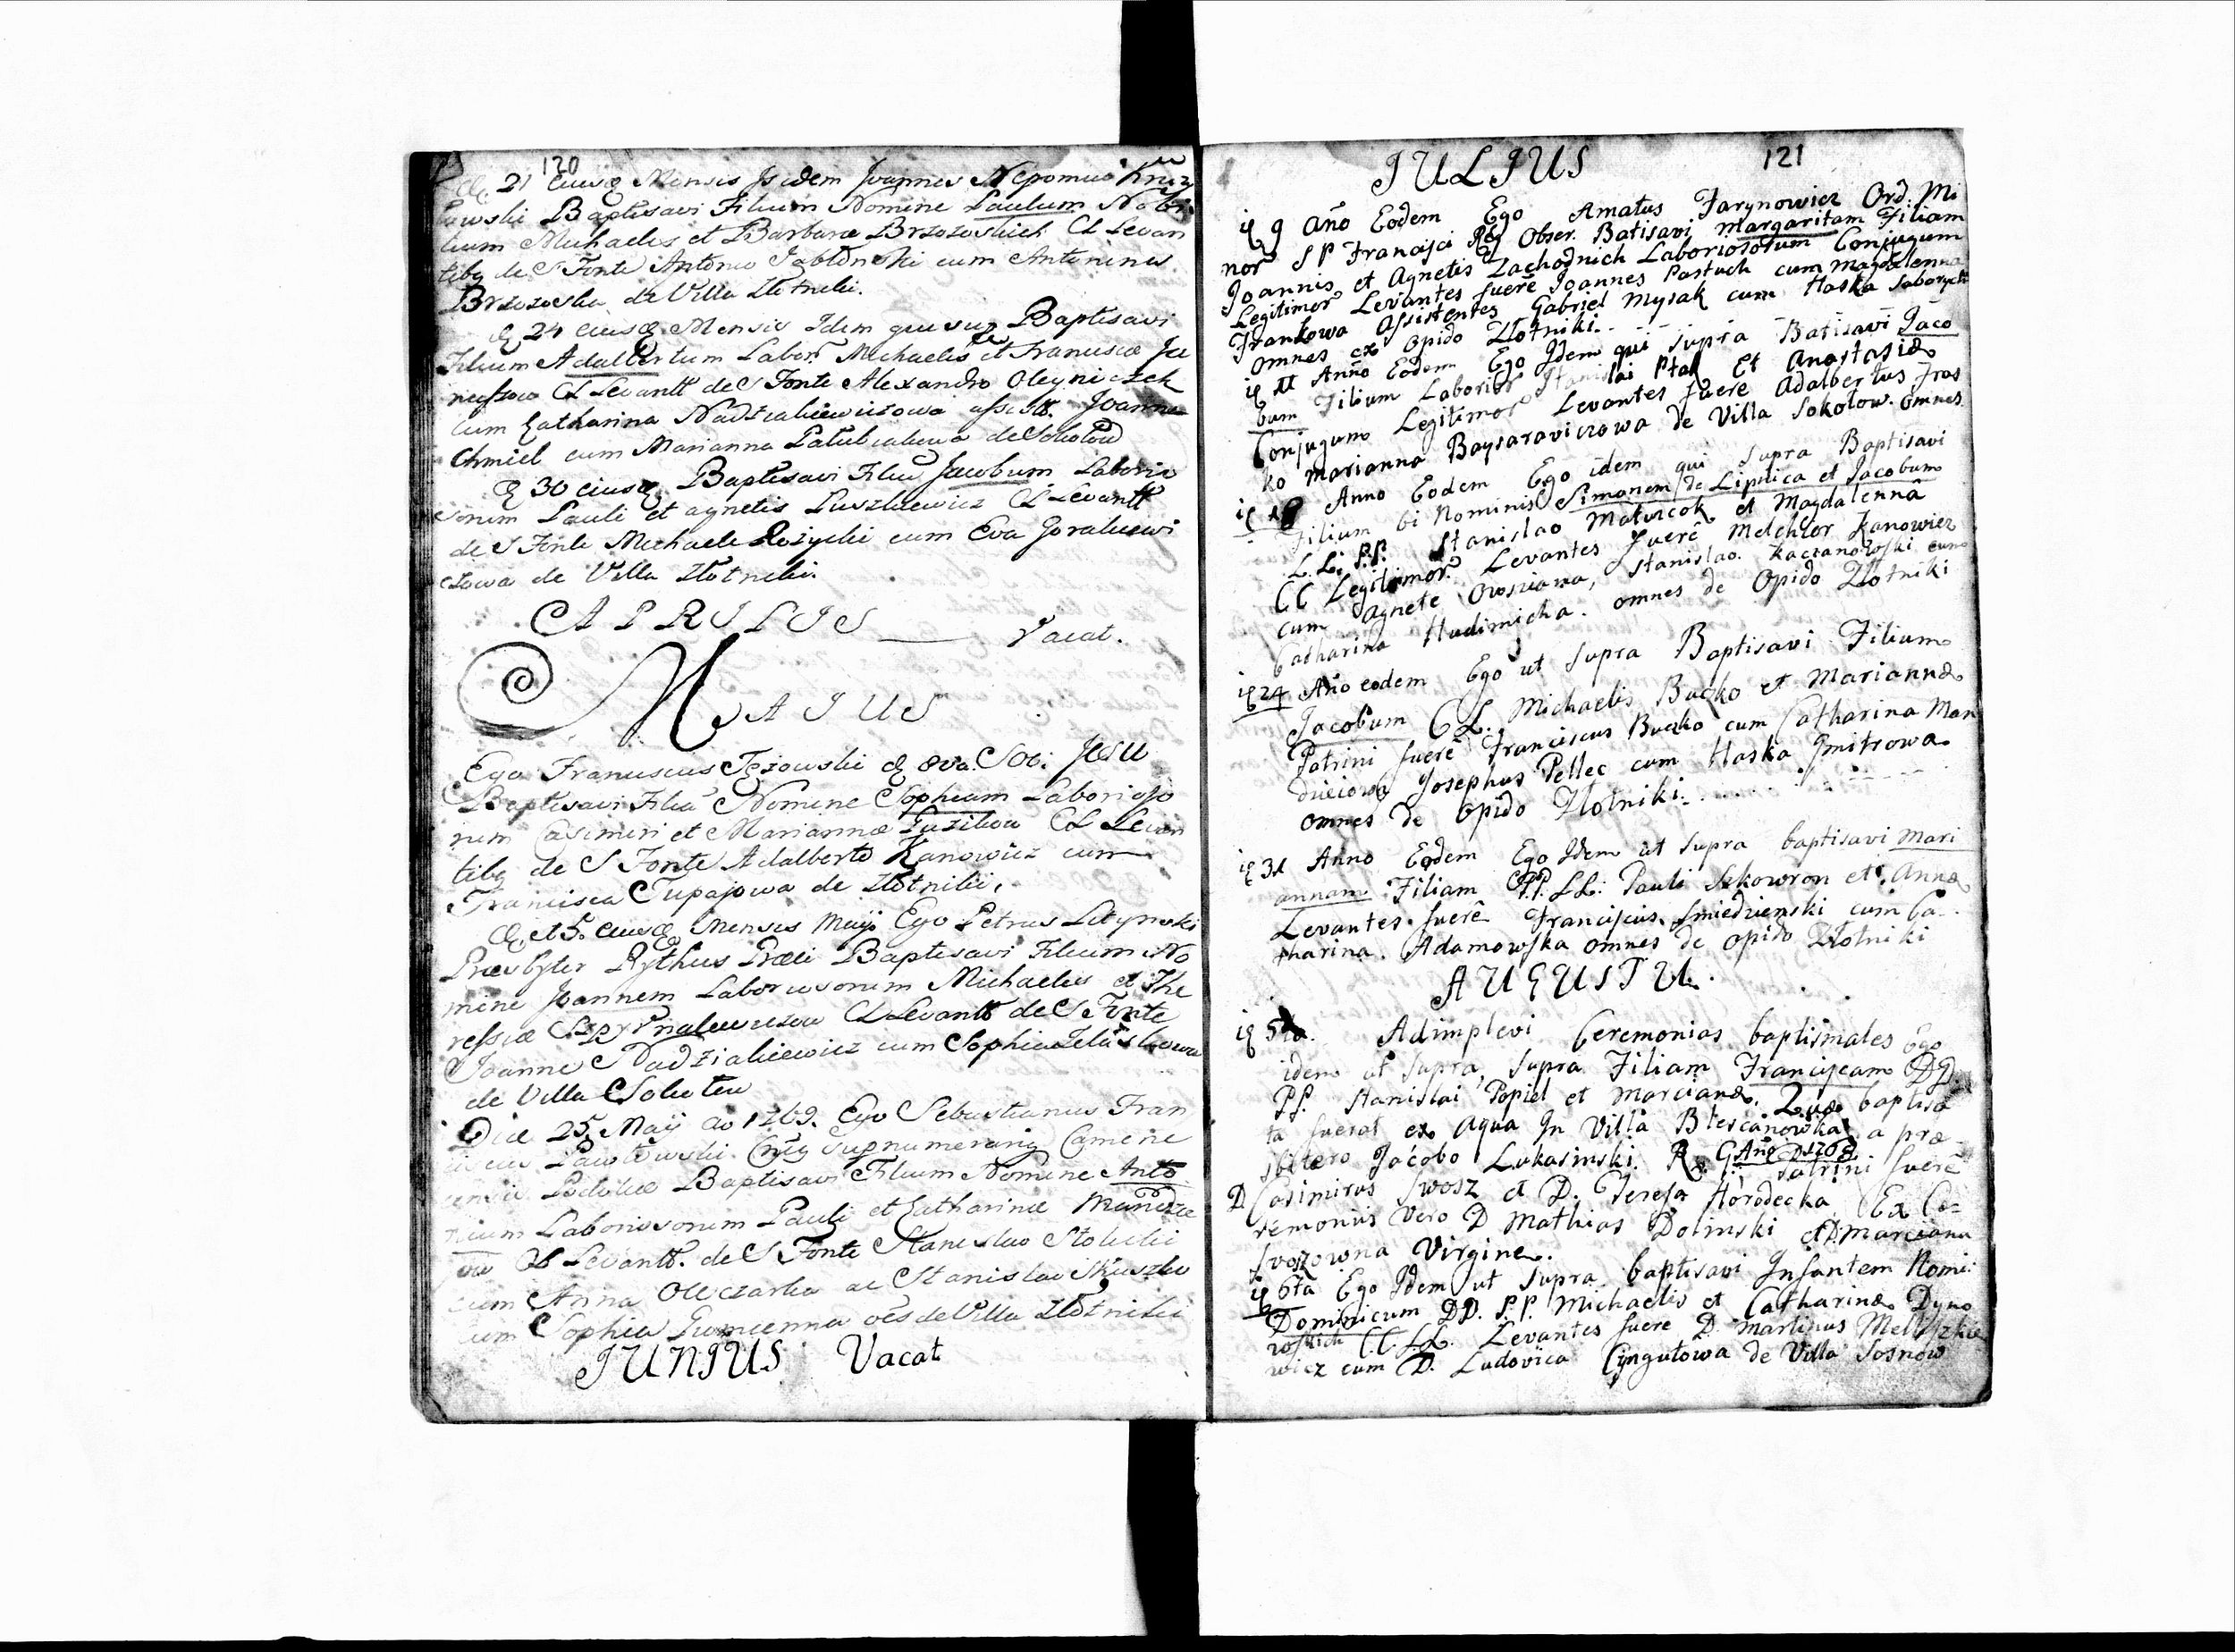 120
21 eiusq Mensis Isidem Joannes Nepomuc
Baptisavi Filium Nomine Paulum Nobi
lium Michaelis et Barbara Brzozoskich CL Levan
tibq de S Fonte Antonio Jabłonski cum Antonina
Brzozoska de Villa Złotniki.
24 eiusq Mensis Idem qui sup Baptisavi
Filium Adalbertum Labor Michaelis et Francisca
CL Levantt de S Fonte Alexandro Oleyniczek
cum Catharina assistt. Joanne
Chmiel cum Marianna de Sokołow
30 eiusq Baptisavi Filiu Jacobum Laborio
sorum Pauli et agnetis Puszkiewicz CL Levantt
de S Fonte Michaele Rozycki cum Eva Goraluewi
czowa de Villa Złotniki.
APRILIS Vacat.
MAIUS
Ego Franciscus Soc: Jesu
Baptisavi Filia Nomine Sophiam Laborioso
rum Casimiri et Mariannæ CL Levan
tibq de S Fonte Adalberto Kanowicz cum
Francisca Tupajowa de Złotniki,
et 5. eiusq Mensis Maÿ Ego Petrus Litynski
Præsbyter Baptisavi Filium No
mine Joannem Laboriosorum Michaelis et The
ressiæ CL Levantt de S Fonte
Joanne Nadziakiewicz cum Sophia
de Villa Sokołow
Die 25. Maÿ ao 1769. Ego Sebastianus Fran
ciscus Pawłowski Supnumerariq Camene
censis Podoliæ Baptisavi Filium Nomine Anto
nium Laboriosorum Pauli et Catharinæ
CL Levantt. de S Fonte Stanislao Stolicki
cum Anna Oleczarka ac Stanislao
cum Sophia oes de Villa Złotniki
JUNIUS Vacat
JULIUS 121
9 Año Eodem Ego Amatus Farynowicz Ord. Mi
nor SP Francisci Obser. Batisavi Margaritam Filiam
Joannis et Agnetis Zachodnich Laboriosorum Conjugum
Legitimor Levantes fuere Joannes Pastuch cum Magdalenna
Frankowa Assistentes Gabriel Mysak cum Haska
omnes ex opido Złotniki.
11 Anno Eodem Ego Idem qui supra Batisavi Jaco
bum Filium Laborior Stanislai Ptak Et Anastasiæ
Conjugum Legitimor Levantes fuere Adalbertus Fros
ko Marianna Baysaraviczowa de Villa Sokołow. omnes
Anno Eodem Ego idem qui supra Baptisavi
Filium bi Nominis Simonem de Lipnica et Jacobum
L.L: P.P. Stanislao Matwicok et Magdalennâ
CC Legitimor Levantes fuerê Melchior Kanowicz
cum agnete Owsiawa, Stanislao. Kaczanowski cum
Catharina Hudimicka. omnes de Opido Złotniki
24 Año eodem Ego ut supra Baptisavi Filium
Jacobum CL. Michaelis Bucko et Mariannæ
Patrini fuere Franciscus Bucko cum Catharina Man
dziciowa Josephus Pellec cum Haska Gmitrowa
omnes de Opido Złotniki.
31 Anno Eodem Ego Idem ut supra baptisavi Mari
annam Filiam P.P. LL: Pauli Szkowron et Annæ
Levantes fuerê Franciscus Smiedzienski cum Ca
tharina. Adamowska omnes de opido Złotniki
AUGUSTU.
5ta. Adimplevi Ceremonias baptismales Ego
idem ut supra, supra Filiam Franciscam DD.
PP. Stanislai Popiel et Marcianæ. Quæ baptisa
ta fuerat ex Aqua In Villa Bleszcanowka a præ
sbitero Jacobo Lukasinski. R. G. Año D 1768 Patrini fuerê
D. Casimirus Swosz et D. Teresa Horodecka. Ex Ce=
remoniis vero D Mathias Dolinski et D. Marcianna
Svoszowna Virgine.
6ta Ego Idem ut supra. baptisavi Infantem Nomi:
Dominicum DD. P.P. Michaelis et Catharinæ Dyno
roskich CC.LL. Levantes fuere D. Martinus
wicz cum D. Ludovica Cyngułowa de Villa Sosnow